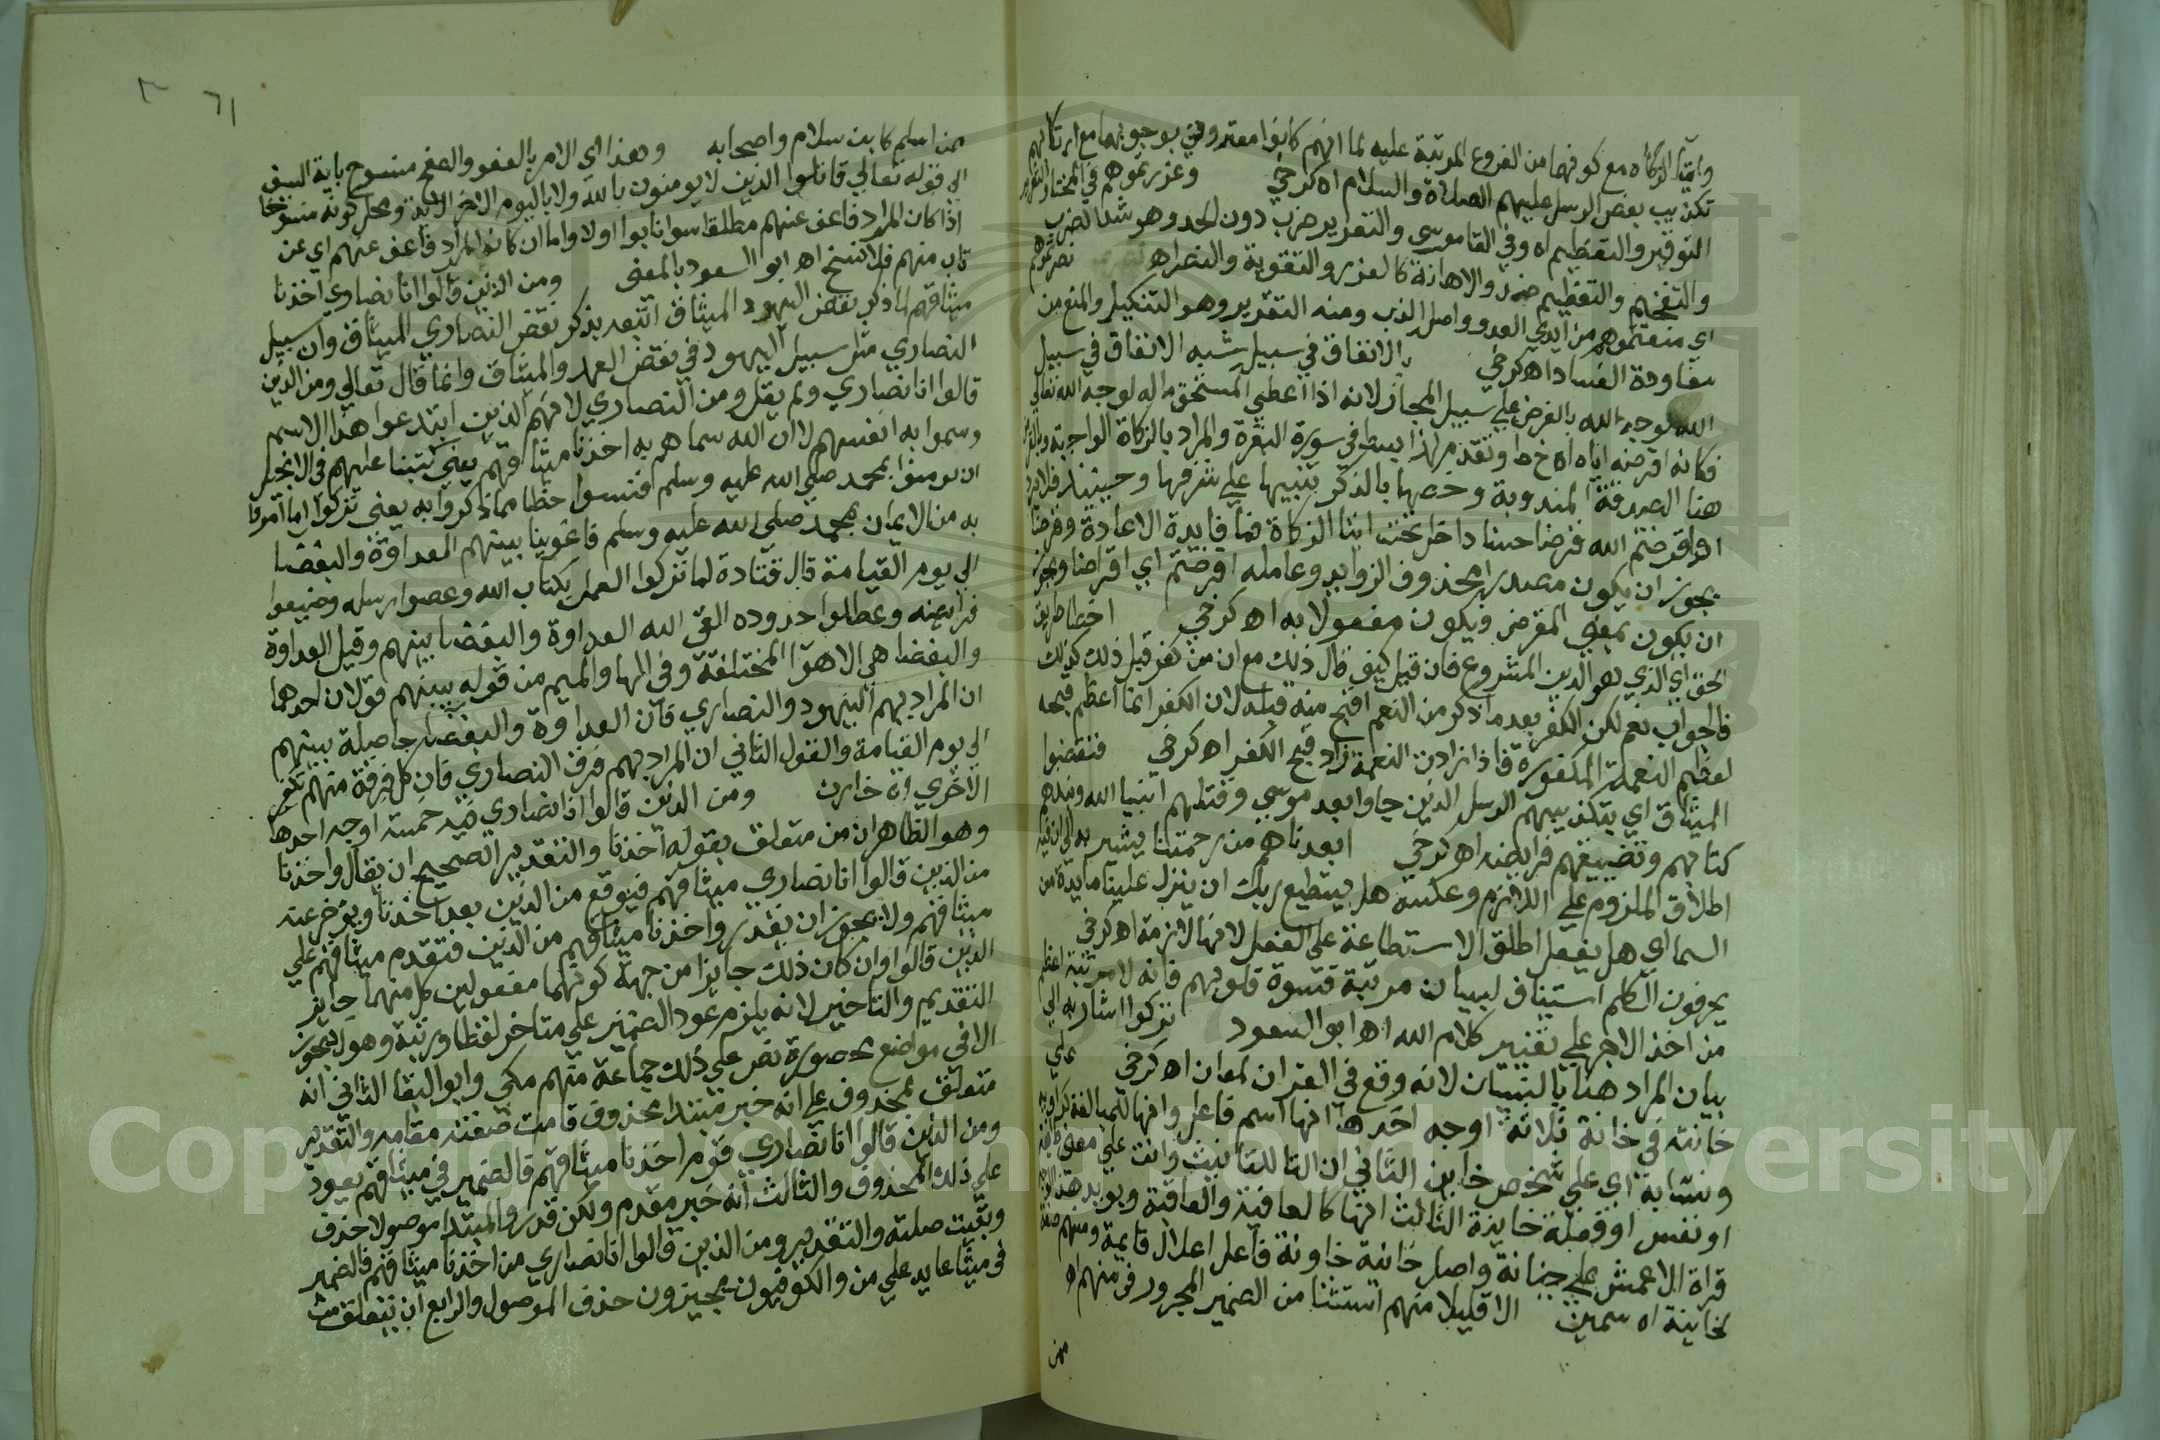 وايتا الزكاة مع كونهما من الفروع المرتبة عليه لما انهم كانوا معترفين بوجوبهما مع ارتكابهم
تكذيب بعض الرسل عليهم الصلاة والسلام اه كرخي وعزرتموهم في المختار التعزير
التوقير والتعظيم اه وفي القاموس والتعزير ضرب دون الحد وهو شد الضرب
والتفخيم والتعظيم ضد والاهانة كالعزر والتقوية والنصر اه نصرتموهم
اي منعتموهم من ايدي العدو واصل الذب ومنه التعزير وهو التنكيل والمنع من
معاودة الفساد اه كرخي بالانفاق في سبيل شبه الانفاق في سبيل
الله لوجه الله بالقرض علي سبيل المجاز لانه اذا اعطي المستحق ماله لوجه الله تعالي
فكانه اقرضه اياه اه خط وتقدم لهذا بسط في سورة البقرة والمراد بالزكاة الواجبة وبالقرض
هنا الصدقة المندوبة وخصها بالذكر تنبيها علي شرفها وحينئذ فلا يرد
اقرضتم الله قرضا حسنا داخل تحت ايتا الزكاة فما فايدة الاعادة وقرضا
يجوز ان يكون مصدرا محذوف الزوايد وعامله اقرضتم اي اقراضا ويجوز
ان يكون بمعني المقرض ويكون مفعولا به اه كرخي اخطا طريق
الحق اي الذي هو الدين المشروع فان قيل كيف قال ذلك مع ان من كفر قبل ذلك كذلك
فالجواب نعم لكن الكفر بعد ما ذكر من النعم اقبح منه قبله لان الكفر انما اعظم قبحه
لعظم النعمة المكفورة فاذا زادت النعمة زاد قبح الكفر اه كرخي فنقضوا
الميثاق اي بتكذيبهم الرسل الذين جاوا بعد موسي وقتلهم انبيا الله ونبذهم
كتابهم وتضييعهم فرايضه اه كرخي ابعدناهم من رحمتنا يشير به الي ان فيه
اطلاق الملزوم علي اللازم وعكسه هل يستطيع ربك ان ينزل علينا مايدة من
السما اي هل يفعل اطلق الاستطاعة علي الفعل لانها لازمة اه كرخي
يحرفون الكلم استيناف لبيان مرتبة قسوة قلوبهم فانه لا مرتبة اعظم
من اخذ الاجر علي تغيير كلام الله اه ابو السعود تركوا اشار به الي
بيان المراد هنا بالنسيان لانه وقع في القران لمعان اه كرخي علي
خائنة في خائنة ثلاثة اوجه احدها انها اسم فاعل وانها للمبالغة كراوية
ونسابة اي علي شخص خاين الثاني ان التا للتانيث وانث علي معني طايفة
او نفس او فعلة خاينة الثالث انها كالعافية والعاقبة ويويد هذا الوجه
قراة الاعمش علي خيانة واصل خائنة خاونة فاعل اعلال قايمة ومنهم صفة
لخاينة اه سمين الا قليلا منهم استثنا من الضمير المجرور في منهم اه
ممن
٦١
ممن اسلم كابن سلام واصحابه وهذا اي الامر بالعفو والصفح منسوخ باية السيف
الي قوله تعالي قاتلوا الذين لا يومنون بالله ولا باليوم الاخر الاية ومحل كونه منسوخا
اذا كان المراد فاعف عنهم مطلقا سوا تابوا اولا واما ان كان المراد فاعف عنهم اي عن
تاب منهم فلا نسخ اه ابو السعود بالمعني ومن الذين قالوا انا نصاري اخذنا
ميثاقهم لما ذكر نقض اليهود الميثاق اتبعه بذكر نقض النصاري الميثاق وان سبيل
النصاري مثل سبيل اليهود في نقض العهد والميثاق وانما قال تعالي ومن الذين
قالوا انا نصاري ولم يقل ومن النصاري لانهم الذين ابتدعوا هذا الاسم
وسموا به انفسهم لا ان الله سماهم به اخذنا ميثاقهم يعني كتبنا عليهم في الانجيل
ان يومنوا بمحمد صلي الله عليه وسلم فنسوا حظا مما ذكروا به يعني تركوا ما امروا
به من الايمان بمحمد صلي الله عليه وسلم فاغرينا بينهم العداوة والبغضا
الي يوم القيامة قال قتادة لما تركوا العمل بكتاب الله وعصوا رسله وضيعوا
فرايضه وعطلوا حدوده القي الله العداوة والبغضا بينهم وقيل العداوة
والبغضا هي الاهوا المختلفة وفي الها والميم من قوله بينهم قولان احدهما
ان المراد بهم اليهود والنصاري فان العداوة والبغضا حاصلة بينهم
الي يوم القيامة والقول الثاني ان المراد بهم فرق النصاري فان كل فرقة منهم تكفر
الاخري اه خازن ومن الذين قالوا انا نصاري فيه خمسة اوجه احدها
وهو الظاهر ان من متعلق بقوله اخذنا والتقدير الصحيح ان يقال واخذنا
من الذين قالوا انا نصاري ميثاقهم فيوقع من الذين بعد اخذنا ويوخر عنه
ميثاقهم ولا يجوز ان يقدر واخذنا ميثاقهم من الذين فتقدم ميثاقهم علي
الذين قالوا وان كان ذلك جايزا من جهة كونهما مفعولين كل منهما جايز
التقديم والتاخير لانه يلزم عود الضمير علي متاخر لفظا ورتبة وهو لا يجوز
الا في مواضع محصورة نص علي ذلك جماعة منهم مكي وابو البقا الثاني انه
متعلق بمحذوف علي انه خبر مبتدا محذوف قامت صفته مقامه والتقدير
ومن الذين قالوا انا نصاري قوم اخذنا ميثاقهم فالضمير في ميثاقهم يعود
علي ذلك المحذوف والثالث انه خبر مقدم ولكن قدروا المبتدا موصولا حذف
وبقيت صلته والتقدير ومن الذين قالوا انا نصاري من اخذنا ميثاقهم فالضمير
في ميثا عايد علي من والكوفيون يجيزون حذف الموصول والرابع ان تتعلق من
Copyright © King Saud University